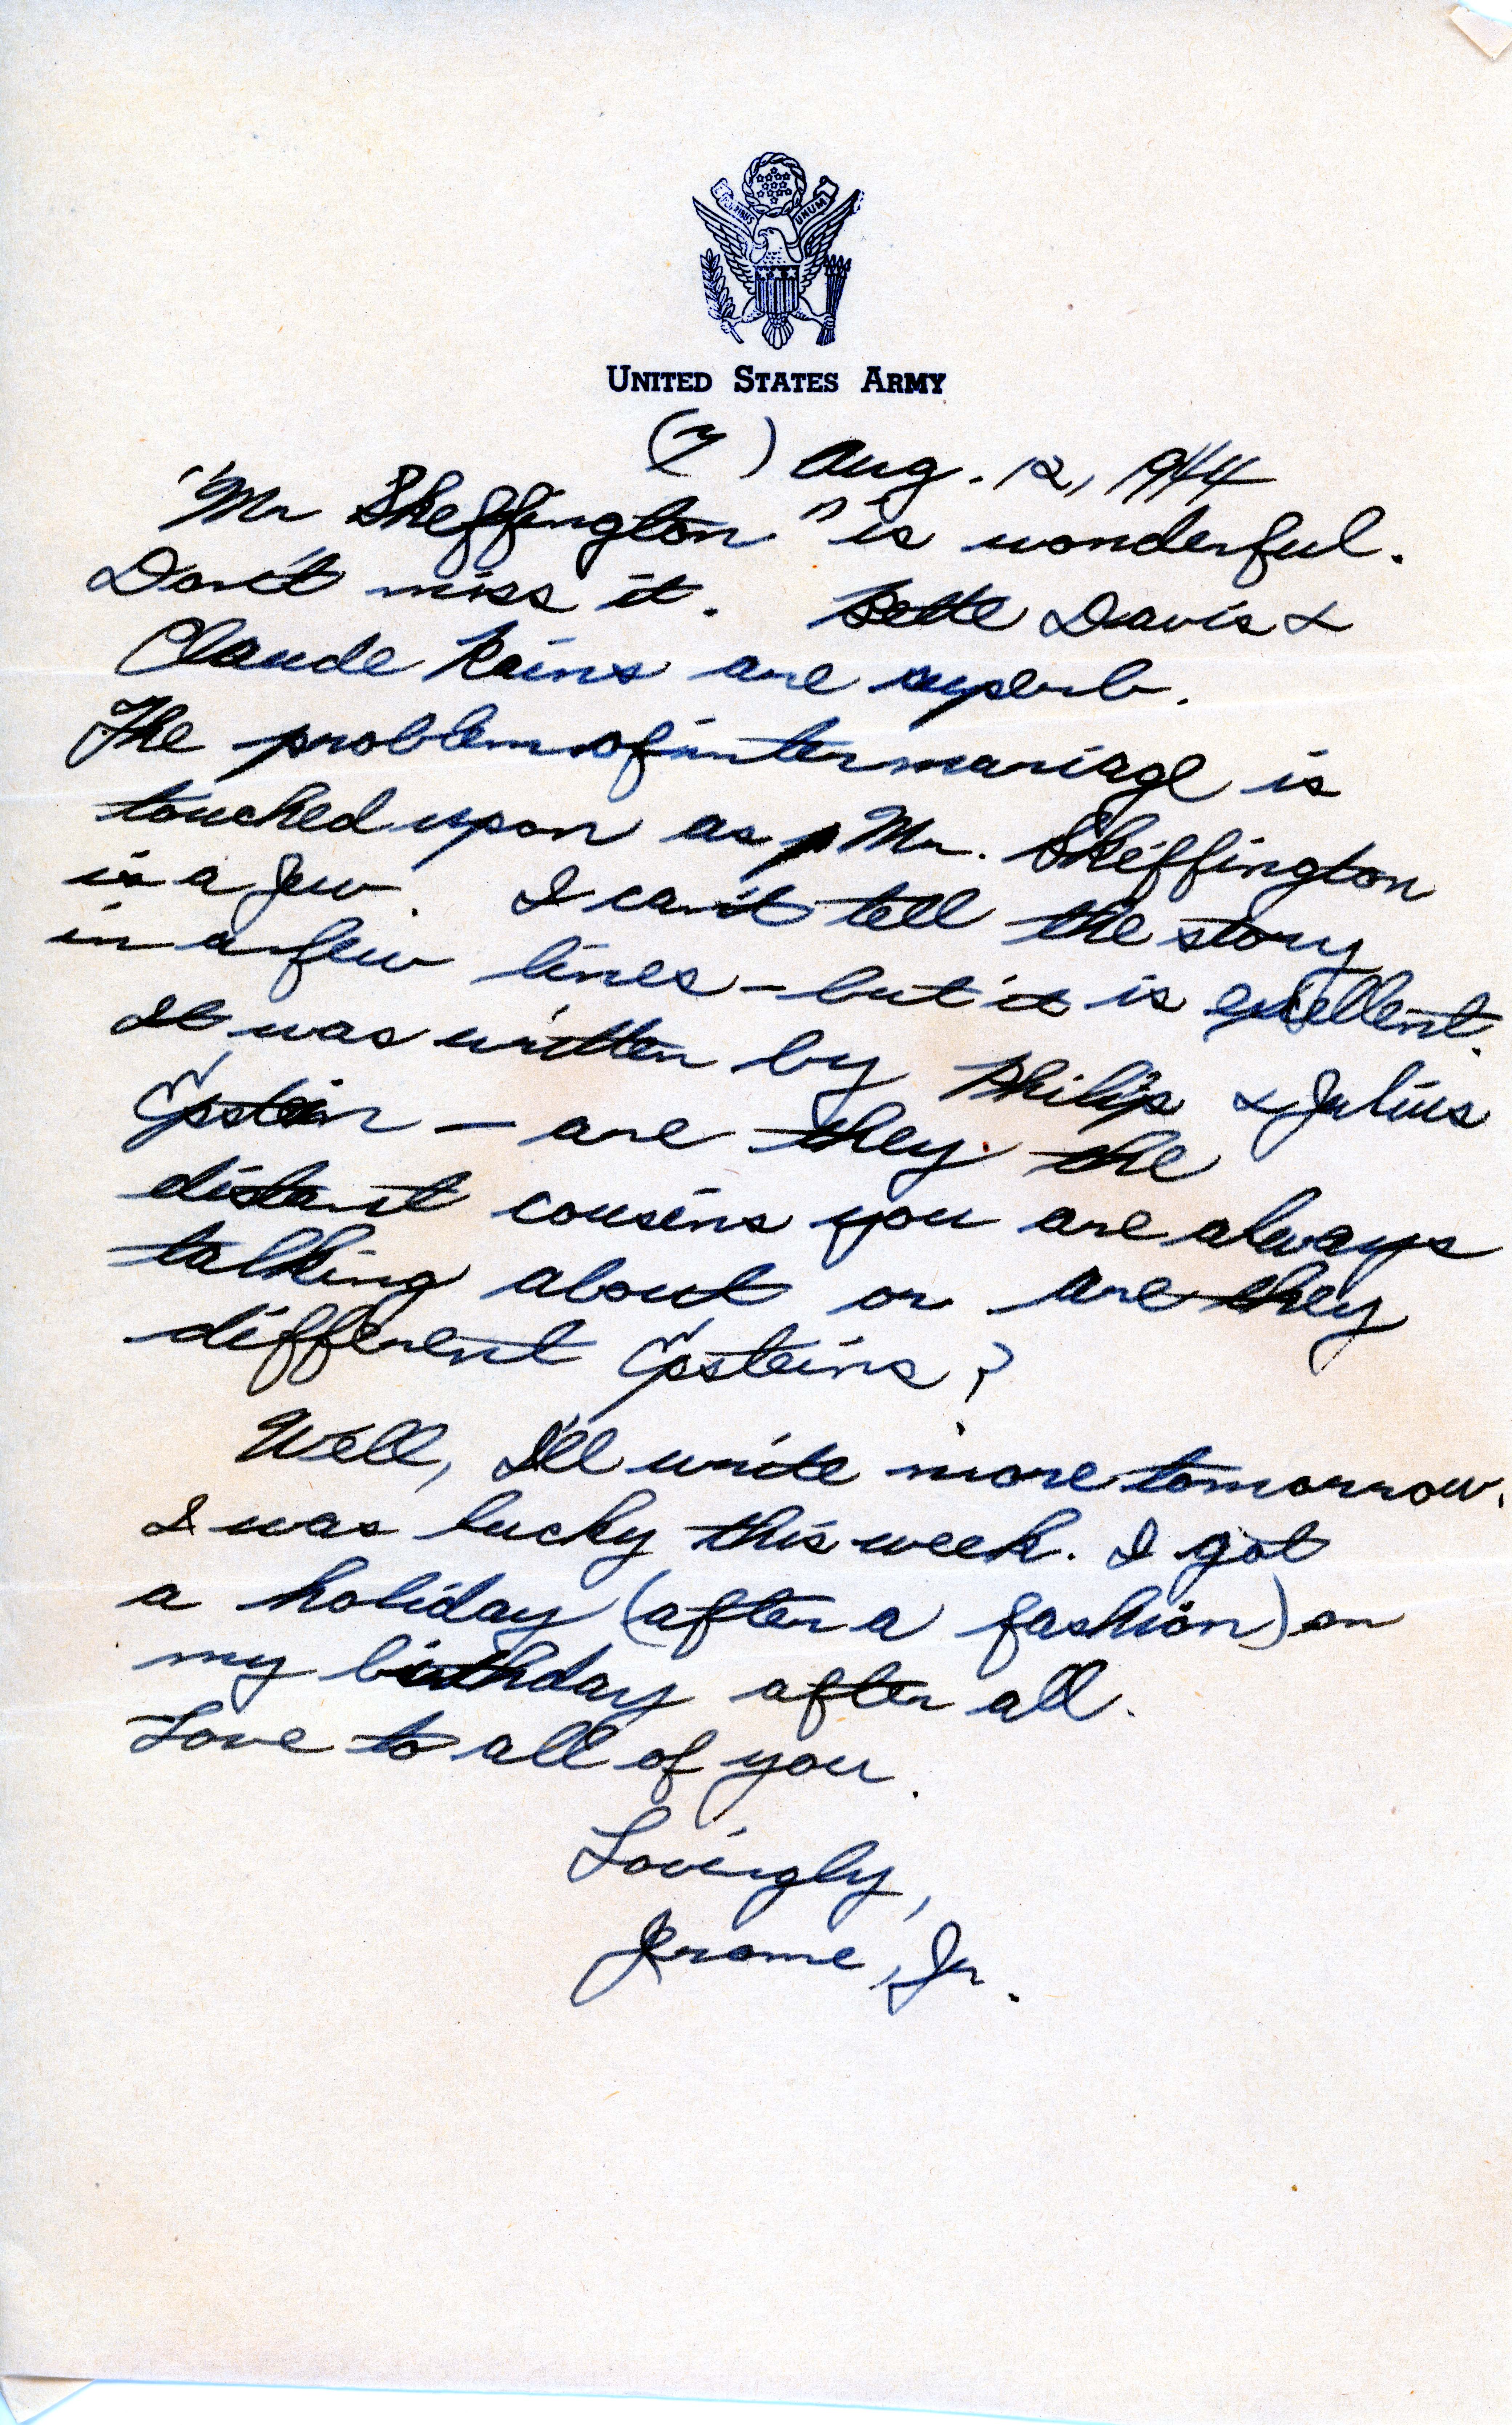 E PLURIBUS UNUM
UNITED STATES ARMY
(7) Aug. 12, 1944
"Mr Skeffington" is wonderful.
Don't miss it. Bette Davis &
Claude Rains are superb.
The problem of intermariage is
touched upon as Mr. Skeffington
is a Jew. I can't tell the story
in a few lines - but it is excellent.
It was written by Philip & Julius
Epstein - are they the
distant cousins you are always
talking about or are they
different Epsteins?
Well, I'll write more tomorrow.
I was lucky this week. I got
a holiday (after a fashion) on
my birthday after all.
Love to all of you.
Lovingly,
Jerome, Jr.